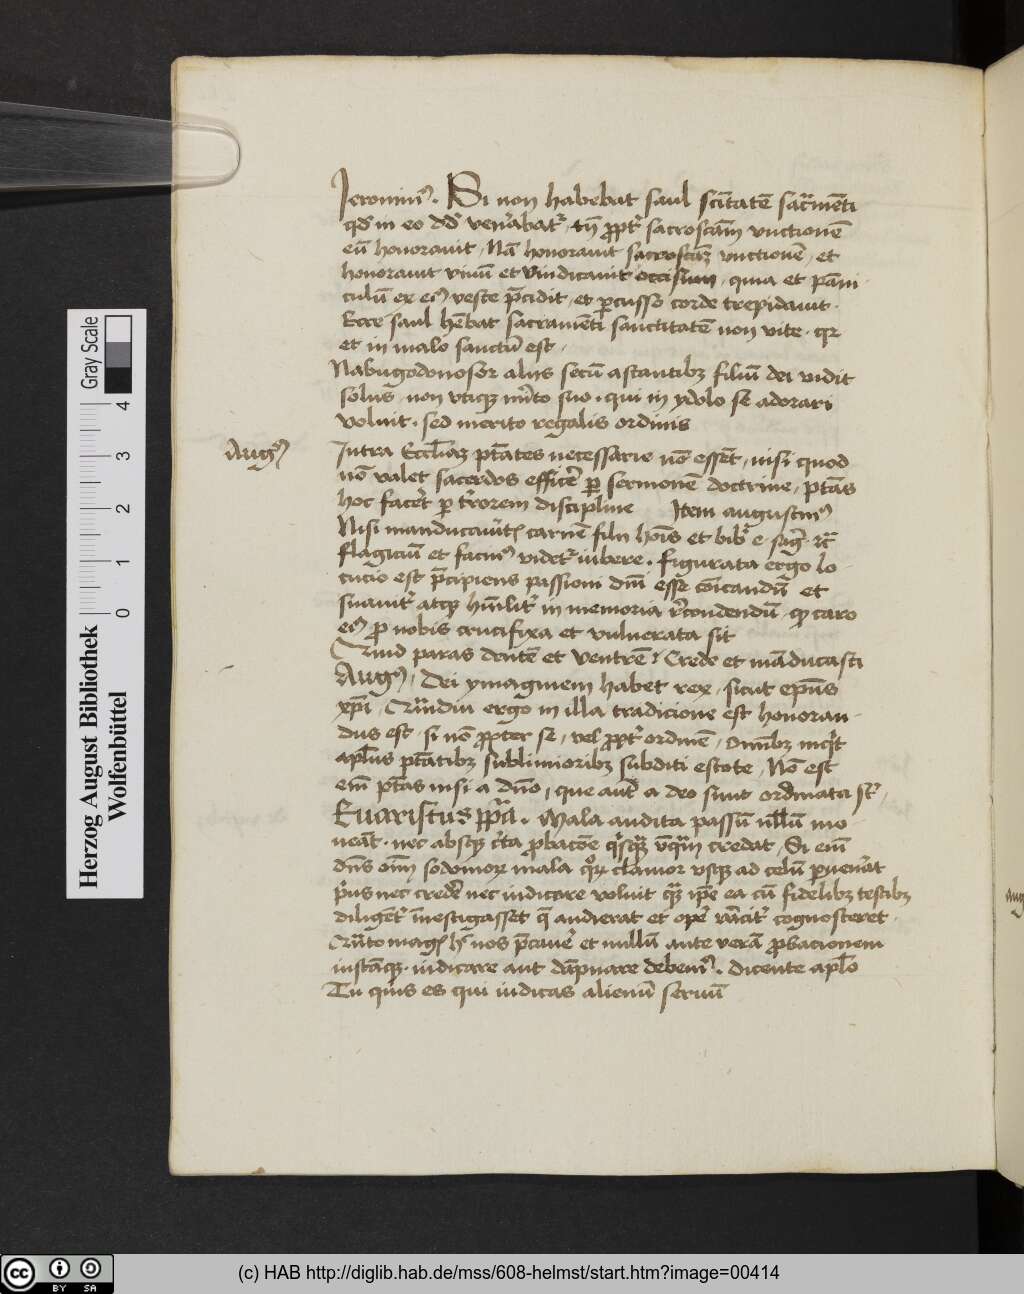 Jeronimꝰ . Si non habebat saul scītatē sacͬmēti
qd' in eo dd venͥabatͬ , tn̄ ꝓptͬ sacrosctām vnctionē
eū honorauit , Nā honorauit sacrosctā vnctionē , et
honorauit viuū et vindicauit occisum , quia et pāni
culū ex eiꝰ veste p̄cidit , et ꝑcusso corde trepidauit .
Ecce saul hēbat sacramēti sanctitatē non vite . qꝛ
et in malo sanctū est .
Nabugodonosor aliis secū astantibꝫ filiū dei vidit
solus , non vtiqꝫ mͥto suo . qui in ydolo se adorari
voluit . sed merito regalis ordinis
Augꝰ
Intra Eccliaꝫ ptātes necessarie nō essēt , nisi quod
nō valet sacerdos efficͤe ꝑ sermonē doctrine , ptās
hoc facͤet ꝑ tͤrorem discipline Item augustinꝰ
Nisi manducauͤitꝭ carnē filii hoīs et bibͥ e sāg . ⁊c̄
flagiciū et facinꝰ videtͬ iubere . figurata ergo lo
cucio est p̄cipiens passioni dm̄ esse cōicandū et
suauitͬ atqꝫ hūilitͬ in memoria rͤcondendū , qꝫ caro
eiꝰ ꝓ nobis crucifixa et vulnerata sit
Quid paras dentē et ventrē ? Crede et māducasti
Augꝰ . Dei ymaginem habet rex , sicut epūs
xpī , Quādiu ergo in illa tradicione est honoran
dus est . si nō propter se , vel ꝓptͬ ordinē , Omībꝫ inqͥt
aplūs ptātibꝫ sublimioribꝫ subditi estote , Nō est
em̄ ptās nisi a dn̄o , que autͤ a deo sunt ordinata st̄ ,
Euaristus ppā . Mala audita passū nullū mo
neāt . nec absqꝫ cͤta ꝓbacōe qͥsqͣꝫ vͫqͣm credat , Si em̄
dn̄s om̄ sodomoꝝ mala qͦꝝ clamor vsqꝫ ad celū ꝑuenͤat
pͥus nec credͤe nec iudicare voluit qͣꝫ ip̄e ea cū fidelibꝫ testibꝫ
diligētͬ īuestigasset q̄ audierat et opͤe vͤacitͬ cognosceret .
Quāto magꝭ hͦ nos p̄cauͤe et nullū ante verā ꝓbacionem
iustāqꝫ . iudicare aut dāpnare debemꝰ . dicente aplō
Tu quis es qui iudicas alienū seruū
Herzog August Bibliothek
Wolfenbüttel
Gray Scale
0 1 2 3 4
cc BY SA
(c) HAB http://diglib.hab.de/mss/608-helmst/start.htm?image=00414